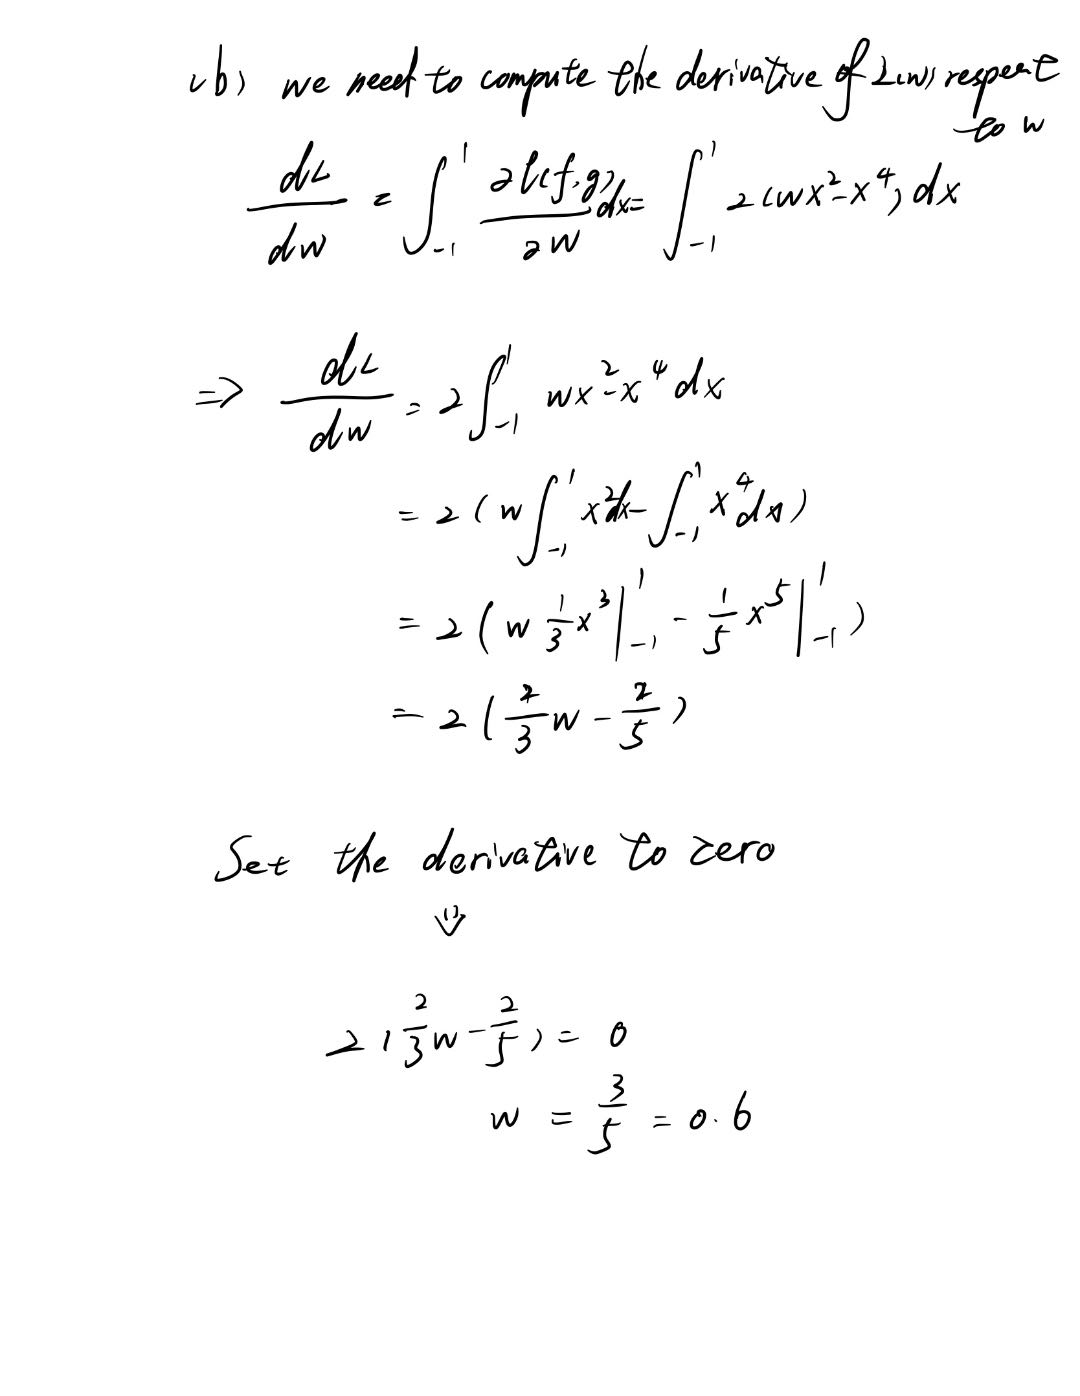 (b) we need to compute the derivative of L(w) respect
to w
dL/dw = ∫_{-1}^{1} ∂l(f,g)/∂w dx = ∫_{-1}^{1} 2(wx²-x⁴) dx
⇒ dL/dw = 2∫_{-1}^{1} wx²-x⁴ dx
= 2(w∫_{-1}^{1} x²dx - ∫_{-1}^{1} x⁴dx)
= 2(w 1/3 x³|_{-1}^{1} - 1/5 x⁵|_{-1}^{1})
= 2(2/3 w - 2/5)
Set the derivative to zero
⇓
2(2/3 w - 2/5) = 0
w = 3/5 = 0.6